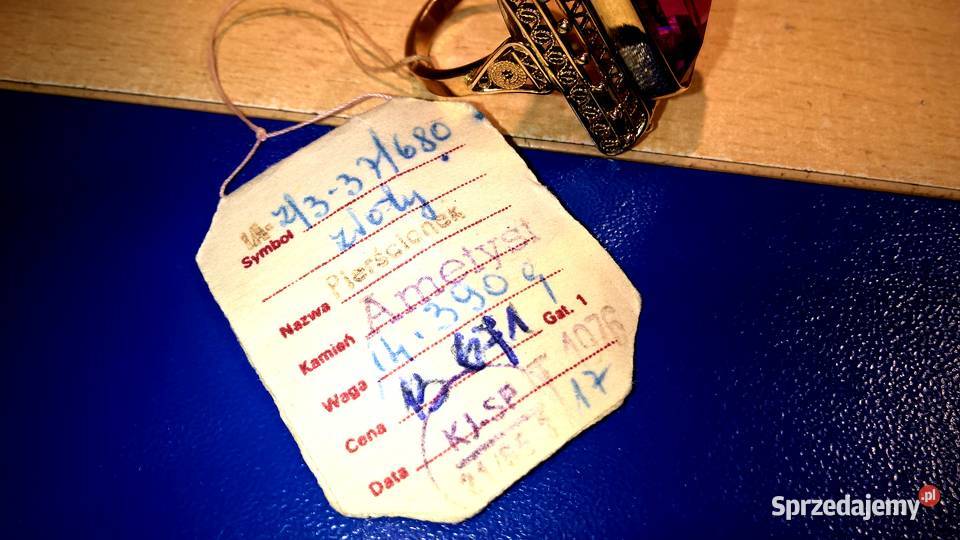 Symbol 1A-2/3-37/680
złoty
Nazwa Pierścionek
Kamień Ametyst
Waga 14.390 g
Cena Gat. 1
Data KJ.SP 17
Sprzedajemy.pl